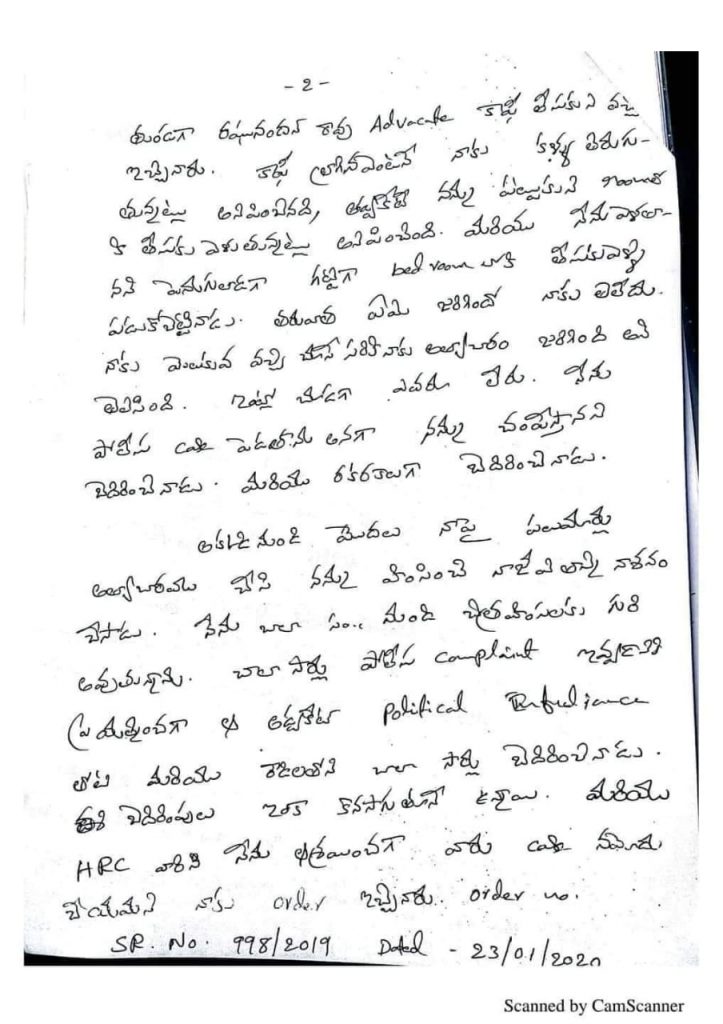 - 2 -
తుండగా రఘునందన్ రావు Advocate కాఫీ తీసుకుని వచ్చి
ఇచ్చినారు. కాఫీ త్రాగినవెంటనే నాకు కళ్ళు తిరుగు-
తున్నట్లు అనిపించినది, అడ్వకేట్ నన్ను పట్టుకుని
కి తీసుకు వెళుతున్నట్లు అనిపించింది. మరియు నేను వెళలా-
నని పెనుగులాడగా గట్టిగా bed room లోకి తీసుకువెళ్ళి
పడుకోబెట్టినాడు. తరువాత ఏమి జరిగిందో నాకు తెలీదు.
నాకు మెలుకువ వచ్చి చూసే సరికి నాకు అత్యాచారం జరిగింది అని
తెలిసింది. ఇంట్లో చూడగా ఎవరూ లేరు. నేను
పోలీసు case పెడతాను అనగా నన్ను చంపేస్తానని
బెదిరించినాడు. మరియు రకరకాలుగా బెదిరించినాడు.
అకడి నుండి మొదలు నాపై పలుమార్లు
అత్యాచారము చేసి నన్ను హింసించి నా జీవితాన్ని నాశనం
చేసాడు. నేను చాలా సం.. నుండి చిత్రహింసలకు గురి
అవుతున్నాను. చాలా సార్లు పోలీసు complaint ఇవ్వడానికి
ప్రయత్నించగా ఆ అడ్వకేట్ Political
తోటి మరియు రౌడీలతోని చాలా సార్లు బెదిరించినాడు.
ఈ బెదిరింపులు ఇంకా కొనసాగుతూనే ఉన్నాయి. మరియు
HRC వారిని నేను ఆశ్రయించగా వారు case నమోదు
చేయమని నాకు order ఇచ్చినారు. order no.
SR. No. 998/2019 Dated - 23/01/2020
Scanned by CamScanner